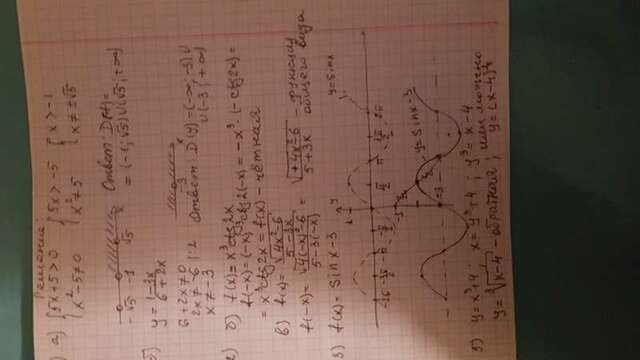 Решение:
а) {5x+5>0 {5x>-5 {x>-1
x²-5≠0 x²≠5 x≠±√5
-√5 -1 √5 x Ответ: D(f)=
=(-1;√5)∪(√5;+∞)
б) y=(1-3x)/(6+2x)
6+2x≠0 -3 x
2x≠-6 |:2 Ответ: D(y)=(-∞;-3)∪
x≠-3 ∪(-3;+∞)
2) б) f(x)=x³ctg2x
f(-x)=(-x)³ctg2(-x)=-x³·(-ctg2x)=
=x³ctg2x=f(x)-чётная
в) f(x)=√(4x²-6)/(5-3x)
f(-x)=√(4(-x)²-6)/(5-3(-x))=√(+4x²-6)/(5+3x) - функция
общего вида
3) f(x)=sinx-3
y y=sinx
1
-2π -3π/2 -π -π/2 π/2 π 3π/2 2π x
-3
y=sinx-3
-3
5) y=x³+4; x=y³+4; y³=x-4
или можно
y=∛(x-4) - обратная; y=(x-4)^⅓